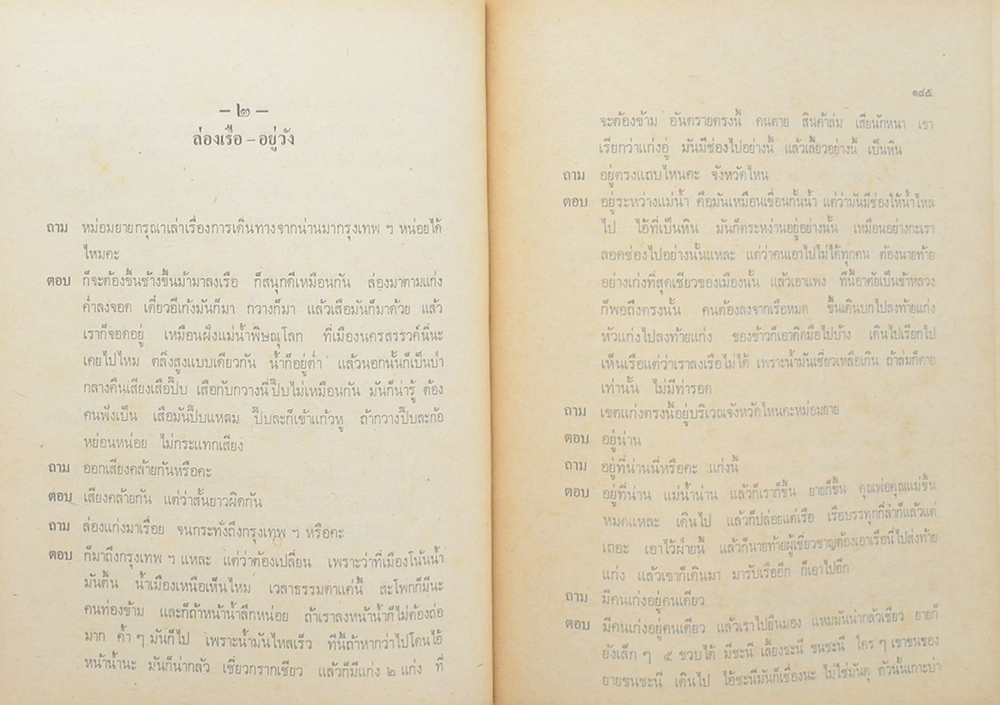 – ๒ –
ล่องเรือ – อยู่วัง
ถาม หม่อมยายกรุณาเล่าเรื่องการเดินทางจากน่านมากรุงเทพ ฯ หน่อยได้
ไหมคะ
ตอบ ก็จะต้องขึ้นช้างขึ้นม้ามาลงเรือ ก็สนุกดีเหมือนกัน ล่องมาตามแก่ง
ค่ำลงจอด เดี๋ยวอีเก้งมันก็มา กวางก็มา แล้วเสือมันก็มาด้วย แล้ว
เราก็จอดอยู่ เหมือนฝั่งแม่น้ำพิษณุโลก ที่เมืองนครสรรค์นี่นะ
เคยไปไหม ตลิ่งสูงแบบเดียวกัน น้ำก็อยู่ต่ำ แล้วนอกนั้นก็เป็นป่า
กลางคืนเสียงเสือปี๊บ เสือกับกวางนี่ปี๊บไม่เหมือนกัน มันก็น่ารู้ ต้อง
คนฟังเป็น เสือมันปี๊บแหลม ปี๊บละก็เข้าแก้วหู ถ้ากวางปี๊บละก้อ
หย่อนหน่อย ไม่กระแทกเสียง
ถาม ออกเสียงคล้ายกันหรือคะ
ตอบ เสียงคล้ายกัน แต่ว่าสั้นยาวผิดกัน
ถาม ล่องแก่งมาเรื่อย จนกระทั่งถึงกรุงเทพ ฯ หรือคะ
ตอบ ก็มาถึงกรุงเทพ ฯ แหละ แต่ว่าต้องเปลี่ยน เพราะว่าที่เมืองโน้นน้ำ
มันตื้น น้ำเมืองเหนือเห็นไหม เวลาธรรมดาแค่นี้ สะโพกก็มีนะ
คนท่องข้าม และก็ถ้าหน้าน้ำลึกหน่อย ถ้าเราลงหน้าน้ำก็ไม่ต้องถ่อ
มาก ค้ำ ๆ มันก็ไป เพราะน้ำมันไหลเร็ว ทีนี้ถ้าหากว่าไปโดนไอ้
หน้าน้ำนะ มันก็น่ากลัว เชี่ยวกรากเชียว แล้วก็มีแก่ง ๒ แก่ง ที่
๑๔๕
จะต้องข้าม อันตรายตรงนี้ คนตาย สินค้าล่ม เสียนักหนา เขา
เรียกว่าแก่งอู่ มันมีช่องไปอย่างนี้ แล้วเลี้ยวอย่างนี้ เป็นหิน
ถาม อยู่ตรงแถบไหนคะ จังหวัดไหน
ตอบ อยู่ระหว่างแม่น้ำ คือมันเหมือนเขื่อนกั้นน้ำ แต่ว่ามันมีช่องให้น้ำไหล
ไป ไอ้ที่เป็นหิน มันก็ตระหง่านอยู่อย่างนั้น เหมือนอย่างกะเรา
ลอดช่องไปอย่างนั้นแหละ แต่ว่าคนเอาไปไม่ได้ทุกคน ต้องนายท้าย
อย่างเก่งที่สุดเชียวของเมืองนั้น แล้วเอาแพง ทีนี้อาศัยเป็นข้าหลวง
ก็พอถึงตรงนั้น คนต้องลงจากเรือหมด ขึ้นเดินบกไปลงท้ายแก่ง
หัวแก่งไปลงท้ายแก่ง ของข้าวก็เอาติดมือไปบ้าง เดินไปเรียกไป
เห็นเรือแต่ว่าเราลงเรือไม่ได้ เพราะน้ำมันเชี่ยวเหลือเกิน ถ้าล่มก็ตาย
เท่านั้น ไม่มีท่ารอด
ถาม เขตแก่งตรงนี้อยู่บริเวณจังหวัดไหนคะหม่อมยาย
ตอบ อยู่น่าน
ถาม อยู่ที่น่านนี่หรือคะ แก่งนี้
ตอบ อยู่ที่น่าน แม่น้ำน่าน แล้วก็เราก็ขึ้น ยายก็ขึ้น คุณพ่อคุณแม่ขึ้น
หมดแหละ เดินไป แล้วก็ปล่อยแต่เรือ เรือบรรทุกกี่ลำก็แล้วแต่
เถอะ เอาไว้ฝ่ายนี้ แล้วก็นายท้ายผู้เชี่ยวชาญต้องเอาเรือนี้ไปส่งท้าย
แก่ง แล้วเขาก็เดินมา มารับเรืออีก ก็เอาไปอีก
ถาม มีคนเก่งอยู่คนเดียว
ตอบ มีคนเก่งอยู่คนเดียว แล้วเราไปยืนมอง แหมมันน่ากลัวเชียว ยายก็
ยังเล็ก ๆ ๕ ขวบได้ มีชะนี เลี้ยงชะนี ขนชะนี ใคร ๆ เขาขนของ
ยายขนชะนี เดินไป ไอ้ชะนีมันก็เชื่องนะ ไม่ใช่มันดุ ตัวนั้นเกาะบ่า